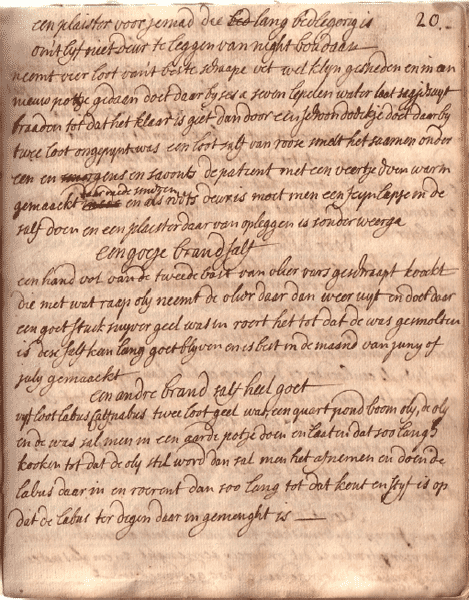 een plaister voor jemad die lang bedlegerig is 20.
om't lijf niet deur te leggen van night boudaan
neemt vier loot van't beste schaape vet wel klijn gesneden en in een
nieuw potje gedaan doet daar bij ses a seven lepelen water laat sagjes uyt
braaden tot dat het klaar is giet dan door een schoon doekje doet daar by
twee loot ongepypt was een loot salf van roose smelt het saamen onder
een en smorgens en saavonts de patient met een veertje doen warm
gemaackt daar mede smeren en als nots deur is moet men een fijn lapje in de
salf doen en een plaester daar van opleggen is sonder weerga
een goeje brandsalf
een hand vol van de tweede bast van vlier vars geschraapt koockt
die met wat raap oly neemt de vlier daar dan weer uyt en doet daar
een goet stuck suyver geel was in roert het tot dat de was gesmolten
is dese salf kan lang goet blyven en is best in de maand van juny of
july gemaackt
een andre brand salf heel goet
vijf loot labus twee loot geel was, een quart pond boom oly, de oly
en de was sal men in een aarde potje doen en laaten dat soo lang
kooken tot dat de oly stil word dan sal men het afnemen en doen de
labus daar in en roerent dan soo lang tot dat kout en styf is op
dat de labus ter degen daar in gemenght is